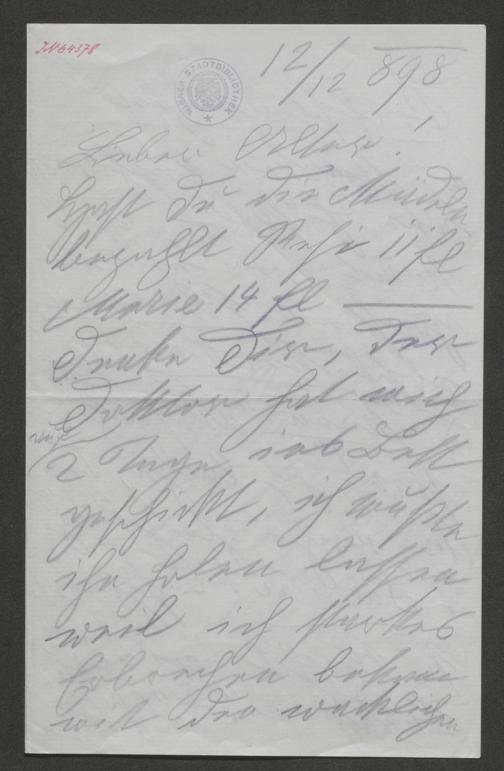 JN 64378
WIENER STADTBIBLIOTHEK
12/12 898
Lieber Alter!
Hast Du die Mädeln
bezahlt Resi 11 fl
Marie 14 fl
Denke Dir, der
Doktor hat mich
auf
2 Tage ins Bett
geschickt, ich mußte
ihn holen lassen
weil ich starkes
Erbrechen bekam
mit den